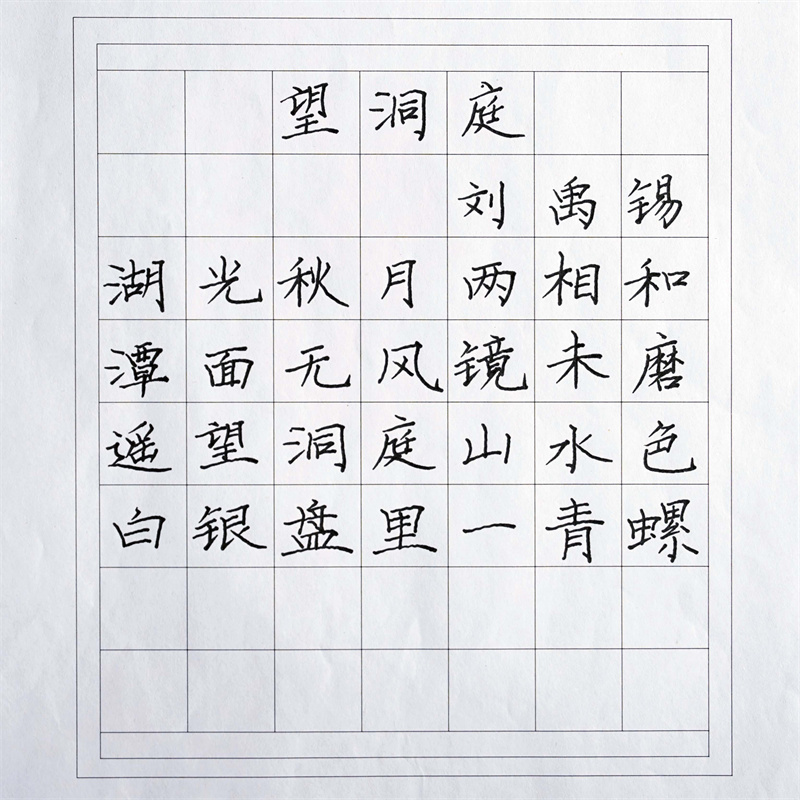 望洞庭
刘禹锡
湖光秋月两相和
潭面无风镜未磨
遥望洞庭山水色
白银盘里一青螺